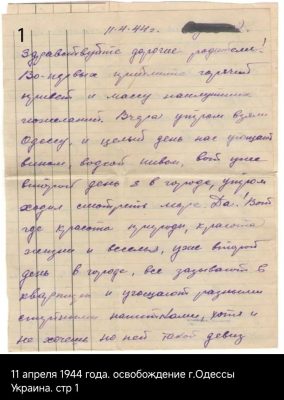 1
11-4-44 г.
Здравствуйте дорогие родители!
Во-первых примите горячий
привет и массу наилучших
пожеланий. Вчера утром взяли
Одессу, и целый день нас угощают
вином, водкой пивом, вот уже
второй день я в городе, утром
ходил смотреть море. Да! Вот
где красота природы, красота
жизни и веселья, уже второй
день в городе, все зазывают в
квартиры и угощают разными
спиртными напитками, хотя и
не хочешь но пей такой девиз
11 апреля 1944 года. освобождение г.Одессы
Украина. стр 1